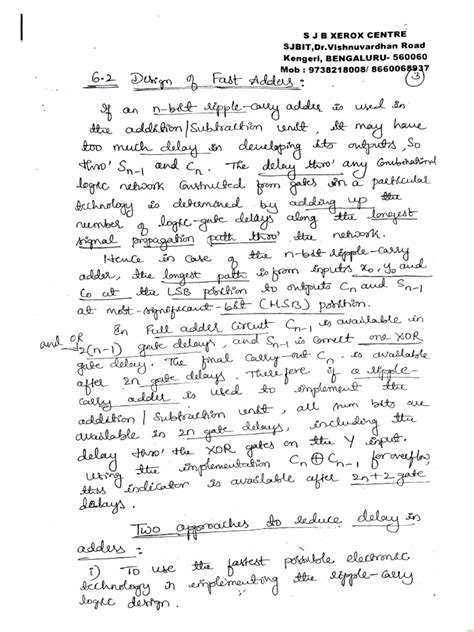 S J B XEROX CENTRE
SJBIT,Dr.Vishnuvardhan Road
Kengeri, BENGALURU- 560060
Mob : 9738218008/ 8660068937
3
6.2 Design of Fast Adders :
If an n-bit ripple-carry adder is used in
the addition/subtraction unit, it may have
too much delay in developing its outputs, So
thro' Sn-1 and Cn. The delay thro' any Combinational
logic network constructed from gates in a particular
technology is determined by adding up the
number of logic-gate delays along the longest
signal propagation path thro' the network.
Hence in case of the n-bit ripple-carry
adder, the longest path is from inputs x0, y0 and
C0 at the LSB position to outputs Cn and Sn-1
at most-significant-bit (MSB) position.
In Full adder circuit Cn-1 is available in
and OR
2(n-1) gate delays, and Sn-1 is correct one XOR
gate delay. The final carry-out Cn is available
after 2n gate delays. Therefore if a ripple-
carry adder is used to implement the
addition / subtraction unit, all sum bits are
available in 2n gate delays, including the
delay thro' the XOR gates on the Y input.
using the implementation Cn ⊕ Cn-1 for overflow,
this indicator is available after 2n+2 gate
delays.
Two approaches to reduce delay in
adders :
i) To use the fastest possible electronic
technology in implementing the ripple-carry
logic design.